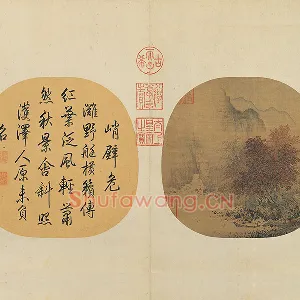 峭壁危
灘野艇橫籟傳
紅葉泛風輕蕭
然秋景含斜照
濩澤人原未負
名
Shufawang.CN